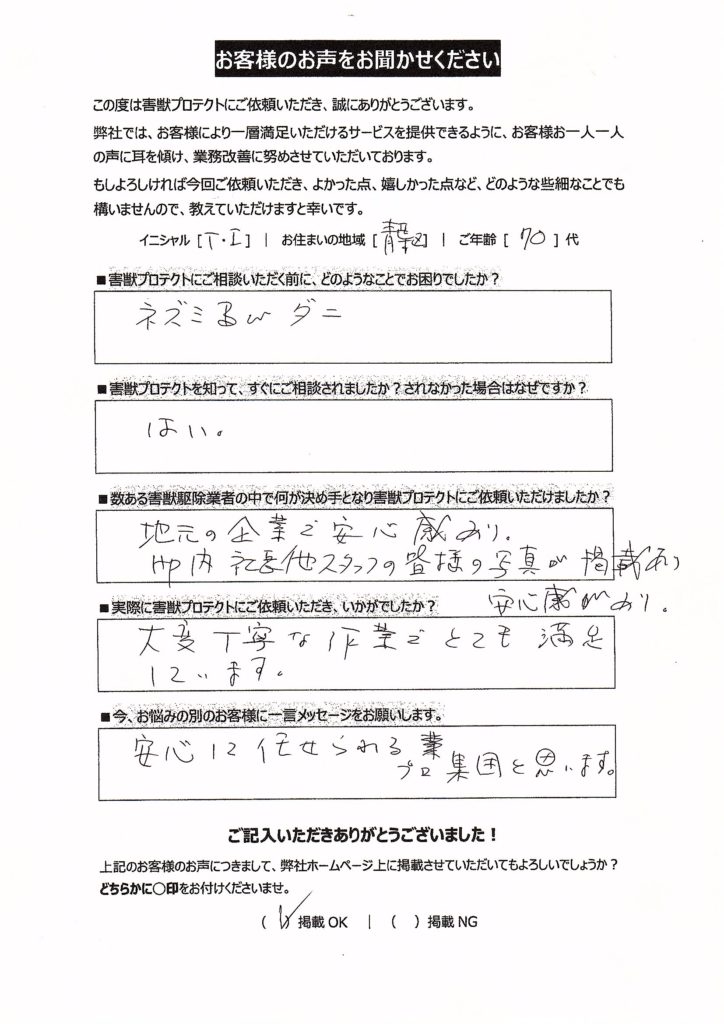 お客様のお声をお聞かせください
この度は害獣プロテクトにご依頼いただき、誠にありがとうございます。
弊社では、お客様により一層満足いただけるサービスを提供できるように、お客様お一人一人
の声に耳を傾け、業務改善に努めさせていただいております。
もしよろしければ今回ご依頼いただき、よかった点、嬉しかった点など、どのような些細なことでも
構いませんので、教えていただけますと幸いです。
イニシャル [ T・I ] | お住まいの地域 [ 青葉区 ] | ご年齢 [ 70 ] 代
■害獣プロテクトにご相談いただく前に、どのようなことでお困りでしたか?
ネズミ ダニ
■害獣プロテクトを知って、すぐにご相談されましたか?されなかった場合はなぜですか?
はい。
■数ある害獣駆除業者の中で何が決め手となり害獣プロテクトにご依頼いただけましたか?
地元の企業で安心感あり。
HP内 社長他スタッフの皆様の写真が掲載あり
安心感があり。
■実際に害獣プロテクトにご依頼いただき、いかがでしたか?
大変丁寧な作業でとても満足
しています。
■今、お悩みの別のお客様に一言メッセージをお願いします。
安心して任せられる
プロ集団と思います。
ご記入いただきありがとうございました!
上記のお客様のお声につきまして、弊社ホームページ上に掲載させていただいてもよろしいでしょうか?
どちらかに〇印をお付けくださいませ。
( ✓ ) 掲載 OK | ( ) 掲載 NG